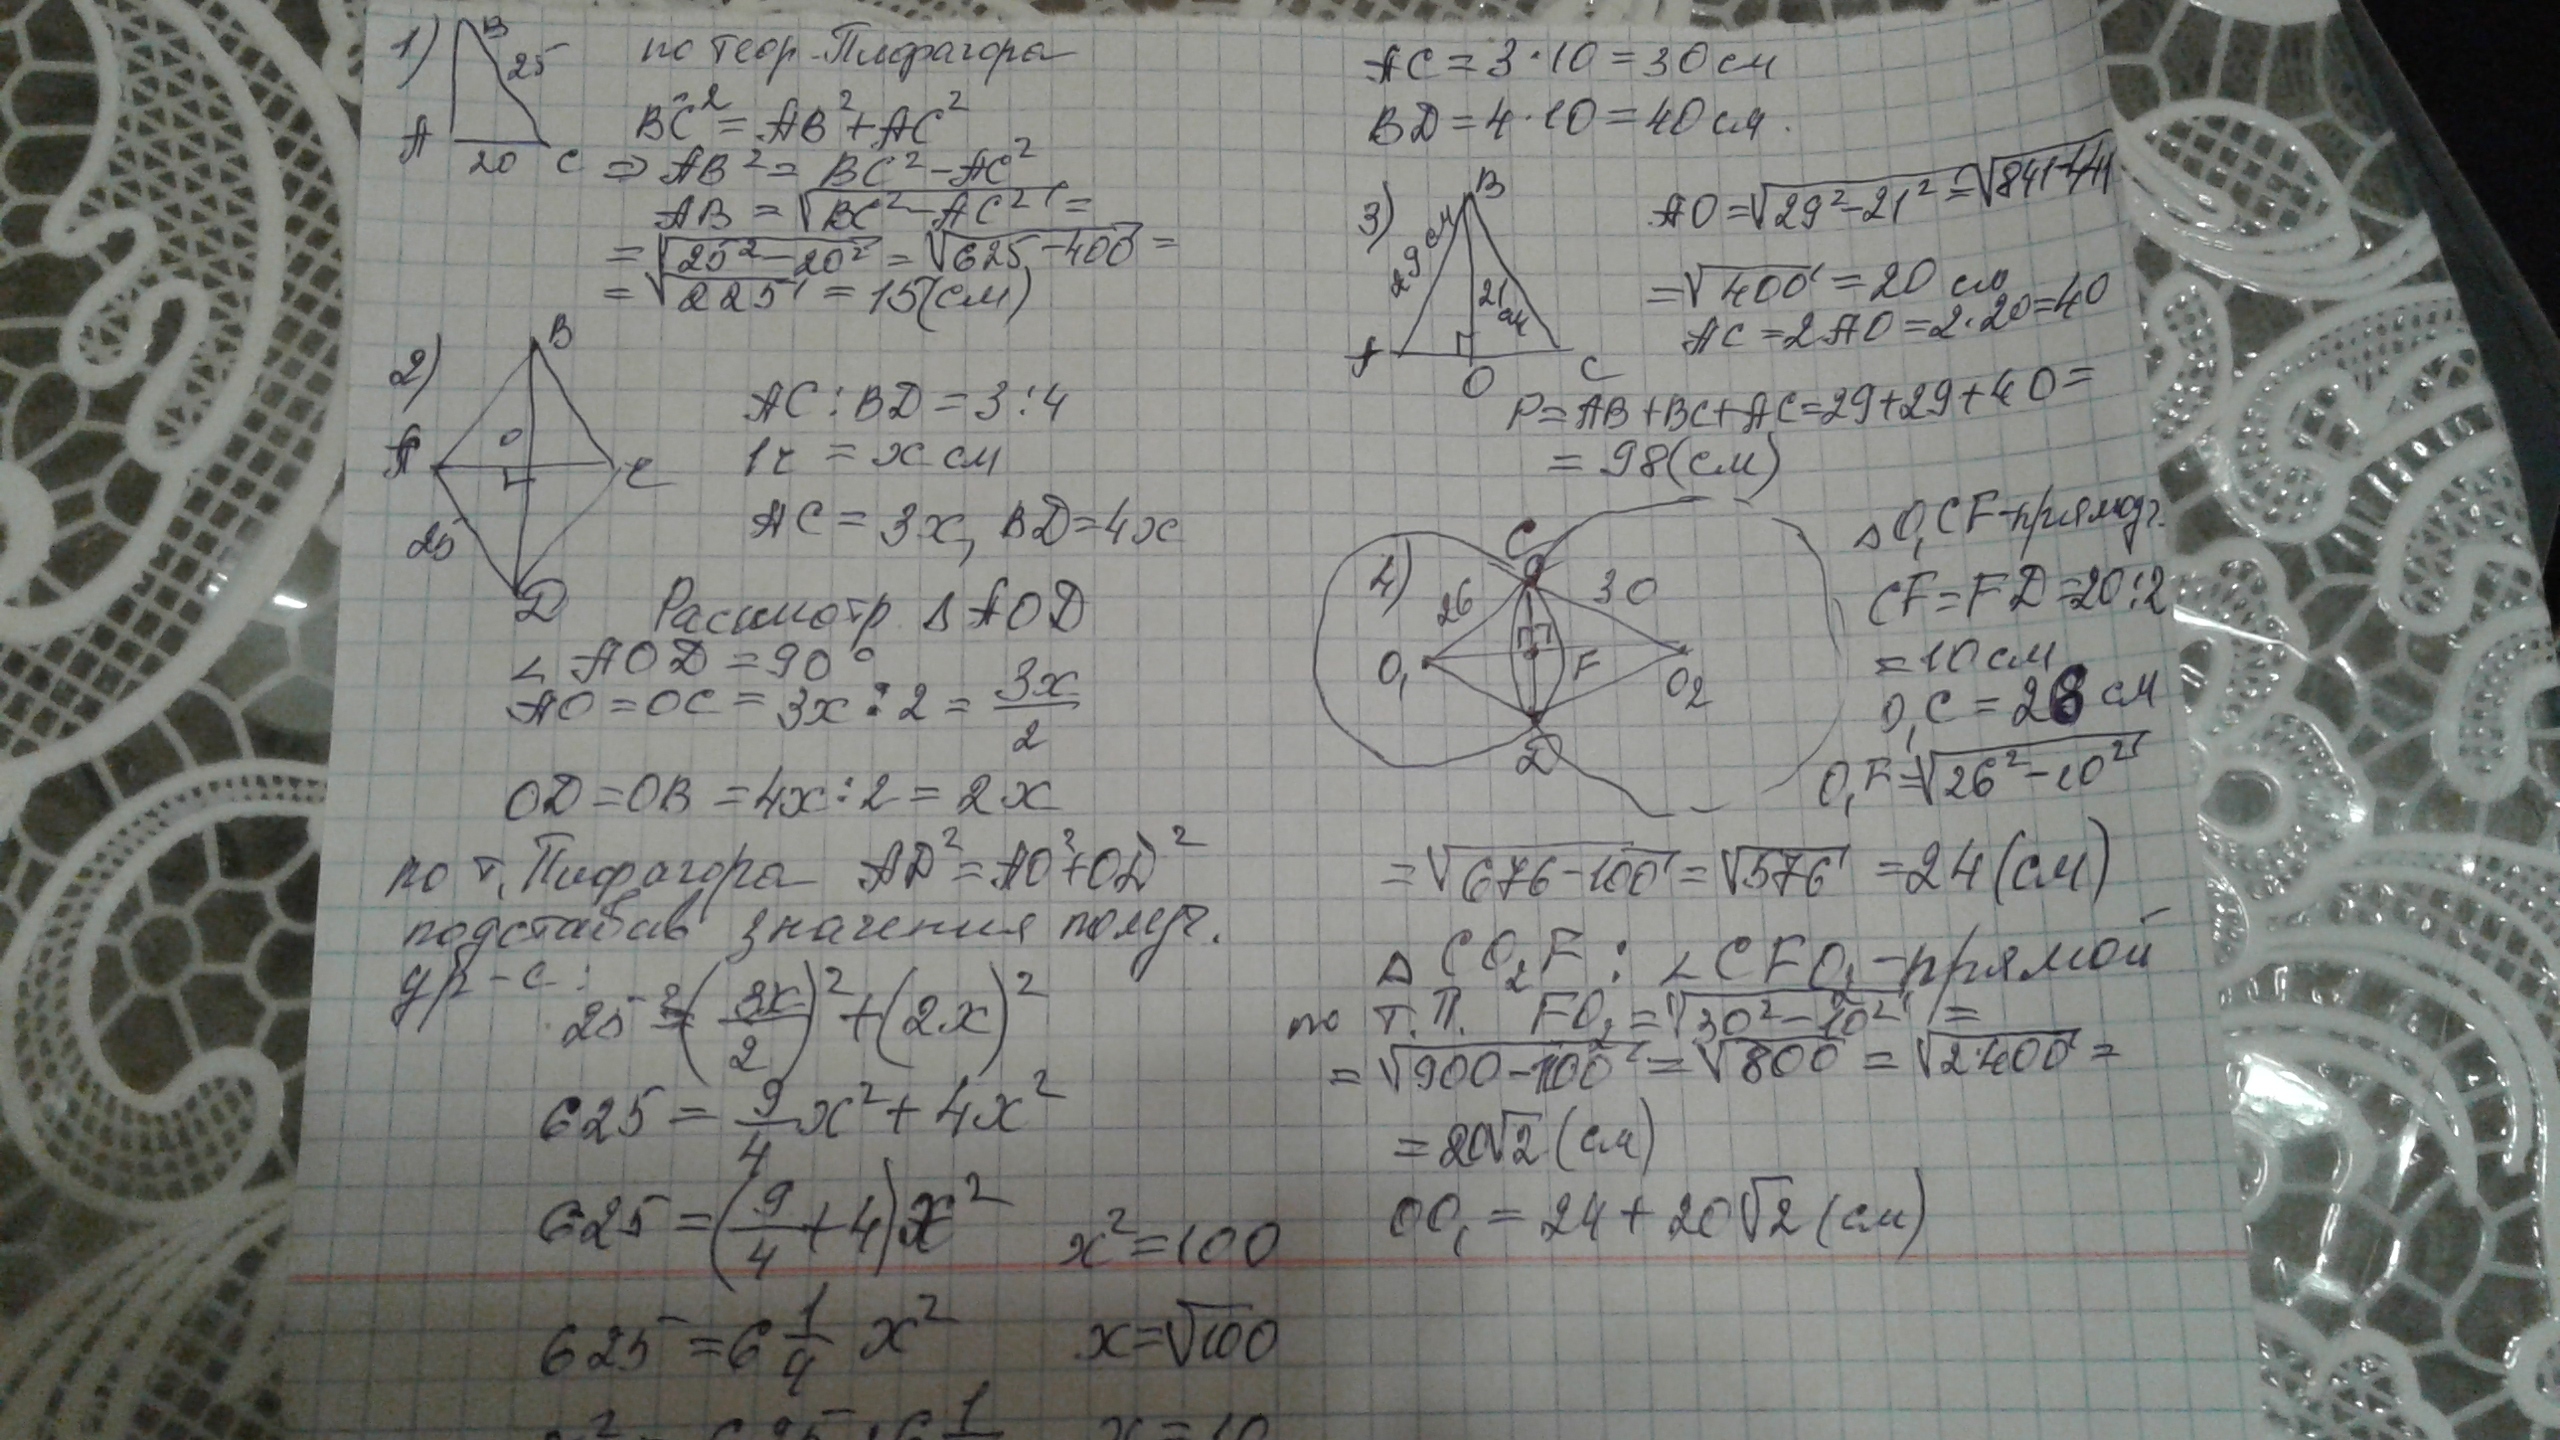 1)
B
25
A
20
C
по теор. Пифагора
BC² = AB² + AC²
⇒ AB² = BC² − AC²
AB = √BC² − AC² =
= √25² − 20² = √625 − 400 =
= √225 = 15 (см)
2)
B
A
O
C
25
D
AC : BD = 3 : 4
1ч = x см
AC = 3x, BD = 4x
Рассмотр. Δ AOD
∠ AOD = 90°
AO = OC = 3x : 2 = 3x/2
OD = OB = 4x : 2 = 2x
по т. Пифагора AD² = AO² + OD²
подставив значения получ.
ур-е:
25² = (3x/2)² + (2x)²
625 = 9/4 x² + 4x²
625 = (9/4 + 4) x²
625 = 6 1/4 x²
x² = 625 : 6 1
x² = 100
x = √100
x = 10
AC = 3 · 10 = 30 см
BD = 4 · 10 = 40 см.
3)
B
29 см
21 см
A
O
C
AO = √29² − 21² = √841 − 441
= √400 = 20 см
AC = 2AO = 2 · 20 = 40
P = AB + BC + AC = 29 + 29 + 40 =
= 98 (см)
4)
C
26
30
O₁
F
O₂
D
Δ O₁CF − прямоуг.
CF = FD = 20 : 2
= 10 см
O₁C = 26 см
O₁F = √26² − 10²
= √676 − 100 = √576 = 24 (см)
Δ CO₂F : ∠ CFO₁ − прямой
по т. П. FO₂ = √30² − 10² =
= √900 − 100 = √800 = √2·400 =
= 20√2 (см)
OO₁ = 24 + 20√2 (см)